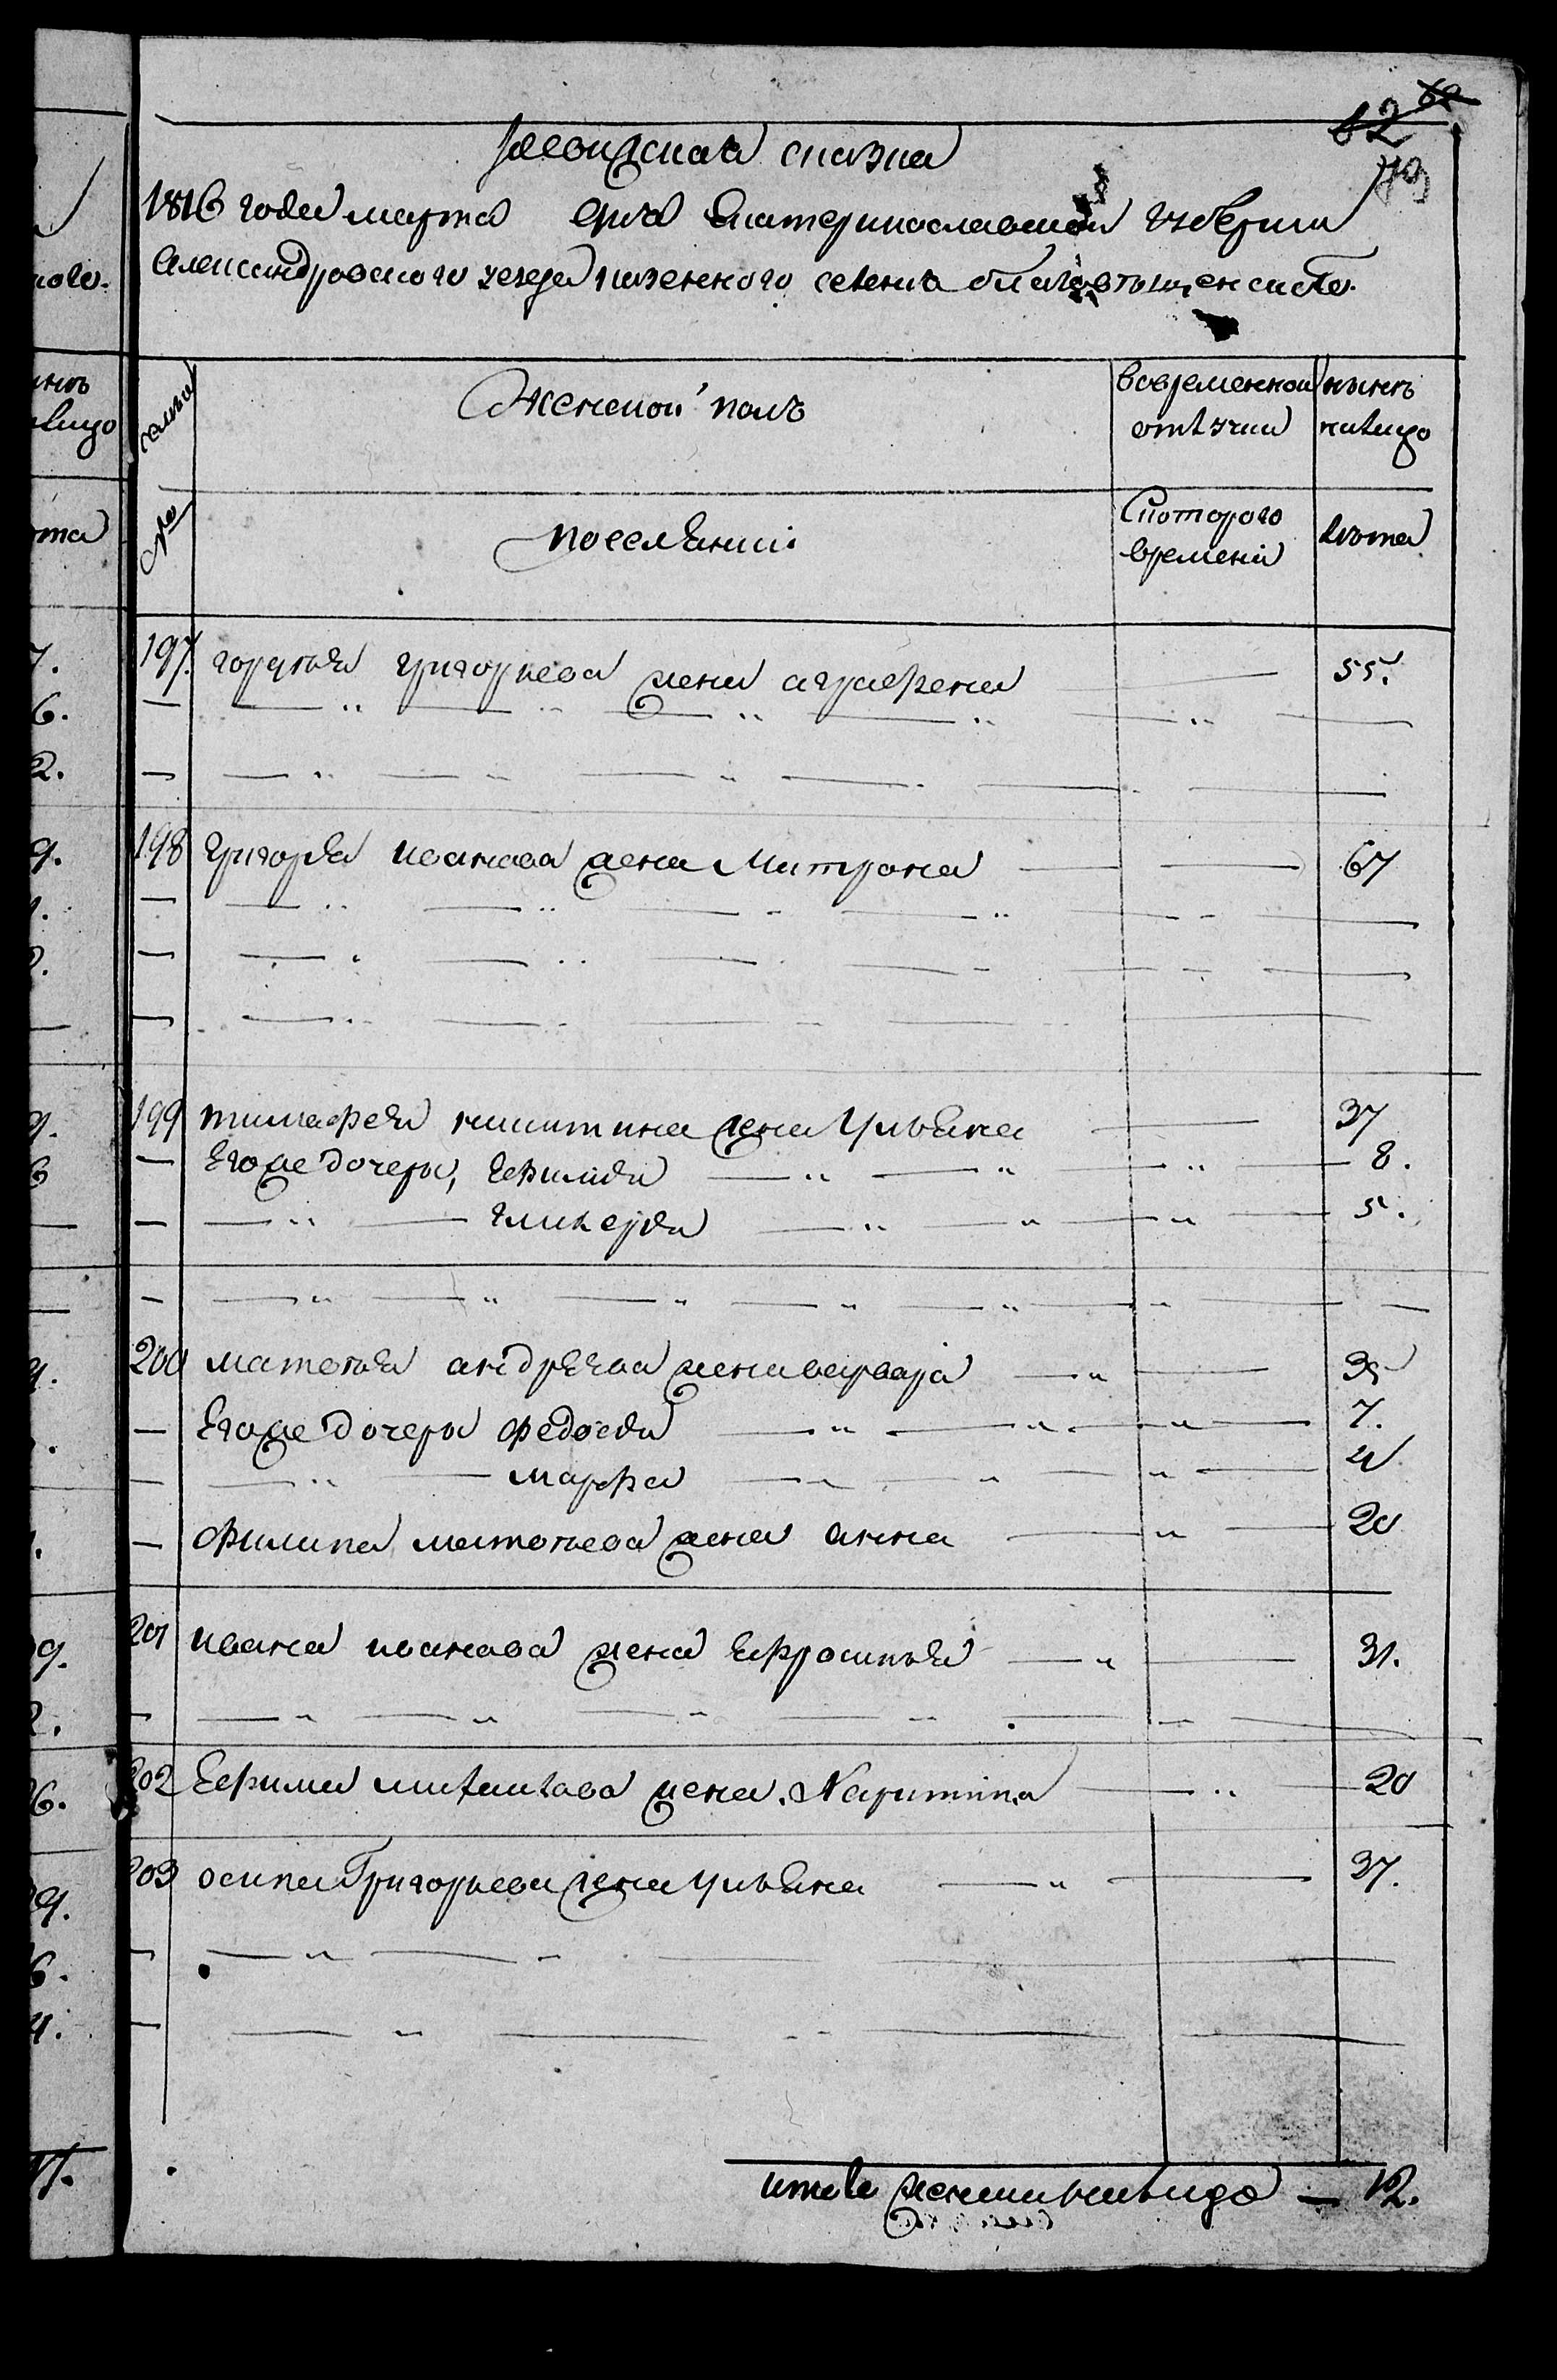 62 62
79
ревизская сказка
1816 года марта дня Екатеринославской губернии
Александровского уезда казенного селения благовещенскаго
семьи
женской полъ
вовременной
отлучки
нынѣ
налицо
№
поселяний
Скоторого
времени
лѣта
197. гордѣя григорьева жена аграфена — 55.
— — " — " — " — " — " —
— — " — " — " — . — . —
198 григорiя иванова жена Митрона — — 67
— — " — " — - — " — - —
— — . — . . — . — - — - —
— — . . — - — - — -  —
199 тимафея никитина жена Ульяна — 37
— Егоже дочеры, Ефимiя — " — " — " — 8.
— — " — гликерiя — " — " — " — 5.
— — " — " — " — " — " — " — —
200 матвѣя андрѣева жена варвара — " — 35
— Егоже дочеры федосiя — " — " — " — 7.
— — " — марфа — " — " — " — 4
— филипа матвѣева жена анна — " — 20
201 ивана иванова жена Ефросинья — " — 31.
— — " — " — " — " — " —
202 Ефима михаилова жена. Харитина — " — 20
203 осипа Григорьева жена ульяна — " — 37.
— — " — - — —
— — " — - - — —
итого женска налицо — 12.